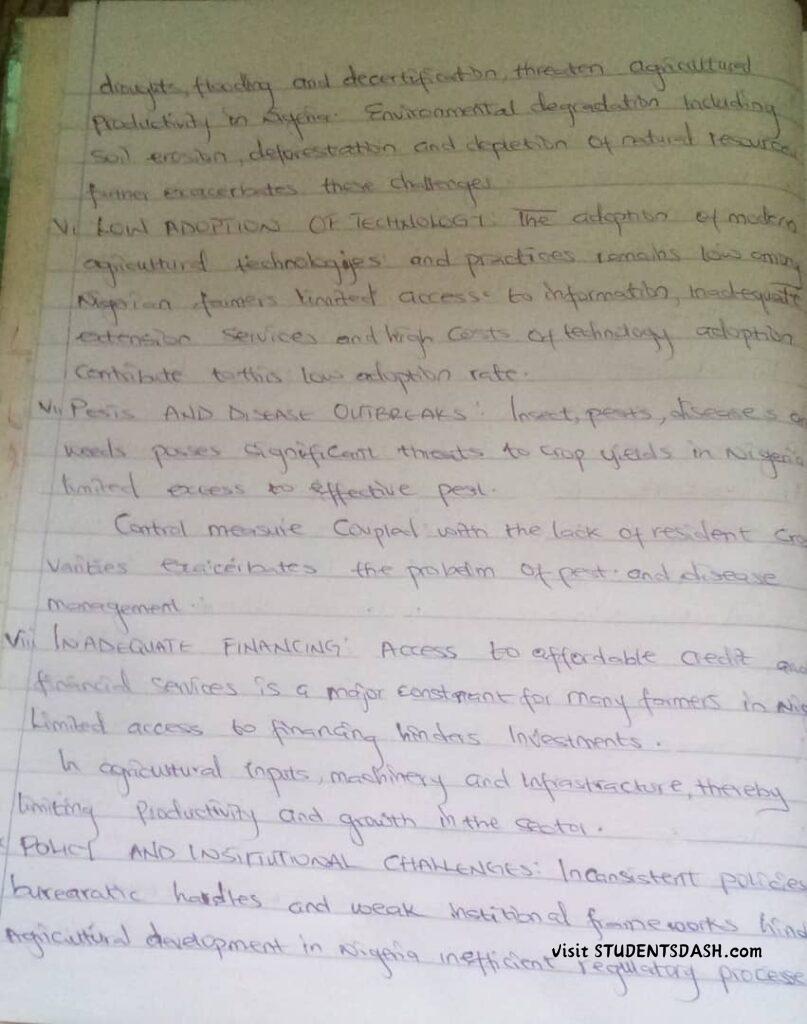 droughts, flooding and decertification, threaten agricultural
Productivity in Nigeria. Environmental degradation Including
Soil erosion, deforestation and depletion of natural resource
further exacerbates these challenges
Vi LOW ADOPTION OF TECHNOLOGY: The adoption of modern
agricultural technologies and practices remains low among
Nigerian farmers limited access to information, Inadequate
extension services and high costs of technology adoption
Contribute to this low adoption rate.
Vii Pests AND DISEASE OUTBREAKS: Insect, pests, diseases
weeds posses significant threats to crop yields in Nigeria
limited excess to effective pest.
Control measure Coupled with the lack of resident Cro
varities exaicerbates the probelm of pest and disease
management.
Viii INADEQUATE FINANCING: Access to affordable credit and
financial services is a major constraint for many farmers in Nig
Limited access to financing hinders Investments.
In agricultural inputs, machinery and Infrastracture, thereby
limiting Productivity and growth in the sector.
POLICY AND INSITITUTIONAL CHALLENGES: Inconsistent policies
burearatic hardles and weak institional frameworks hind
Agricultural development in Nigeria inefficient regulatory processe
visit STUDENTSDASH.com